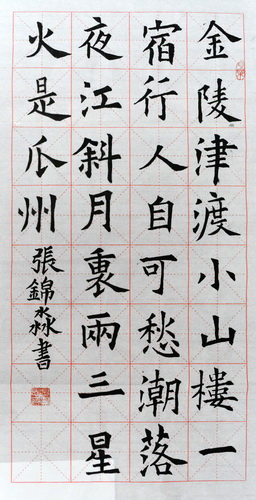 金陵津渡小山樓一
宿行人自可愁潮落
夜江斜月裏兩三星
火是瓜州
張錦淼書